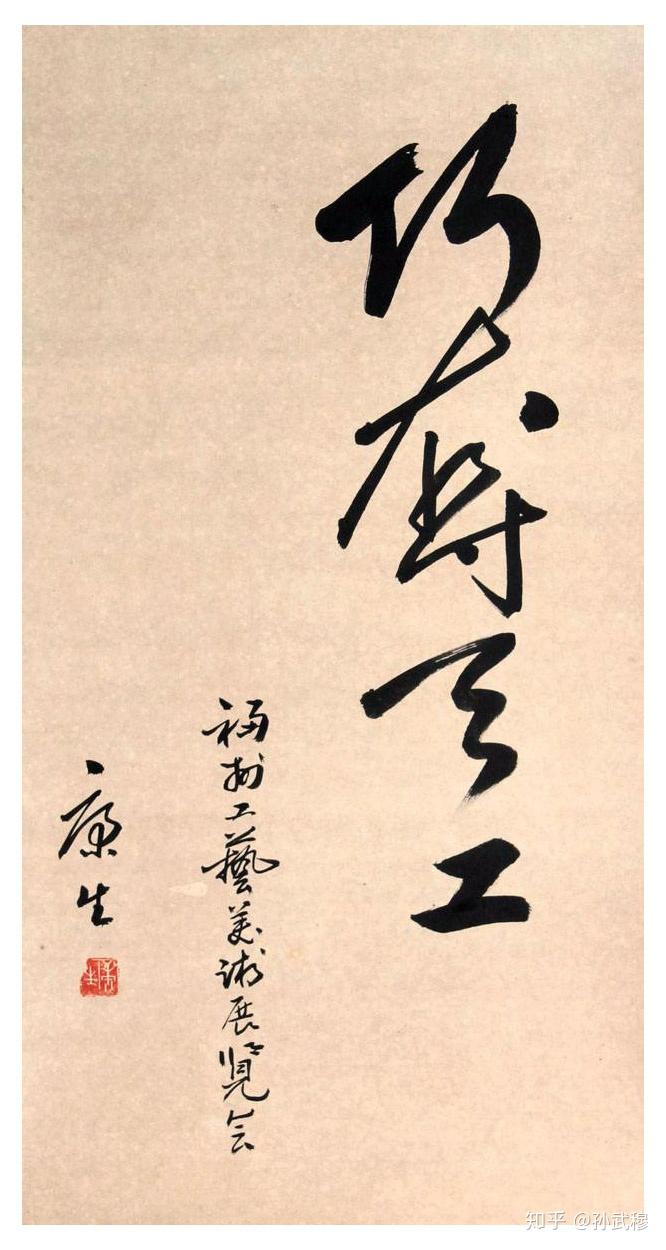 巧奪天工
福州工藝美術展覽会
康生
康生
知乎 @孙武穆